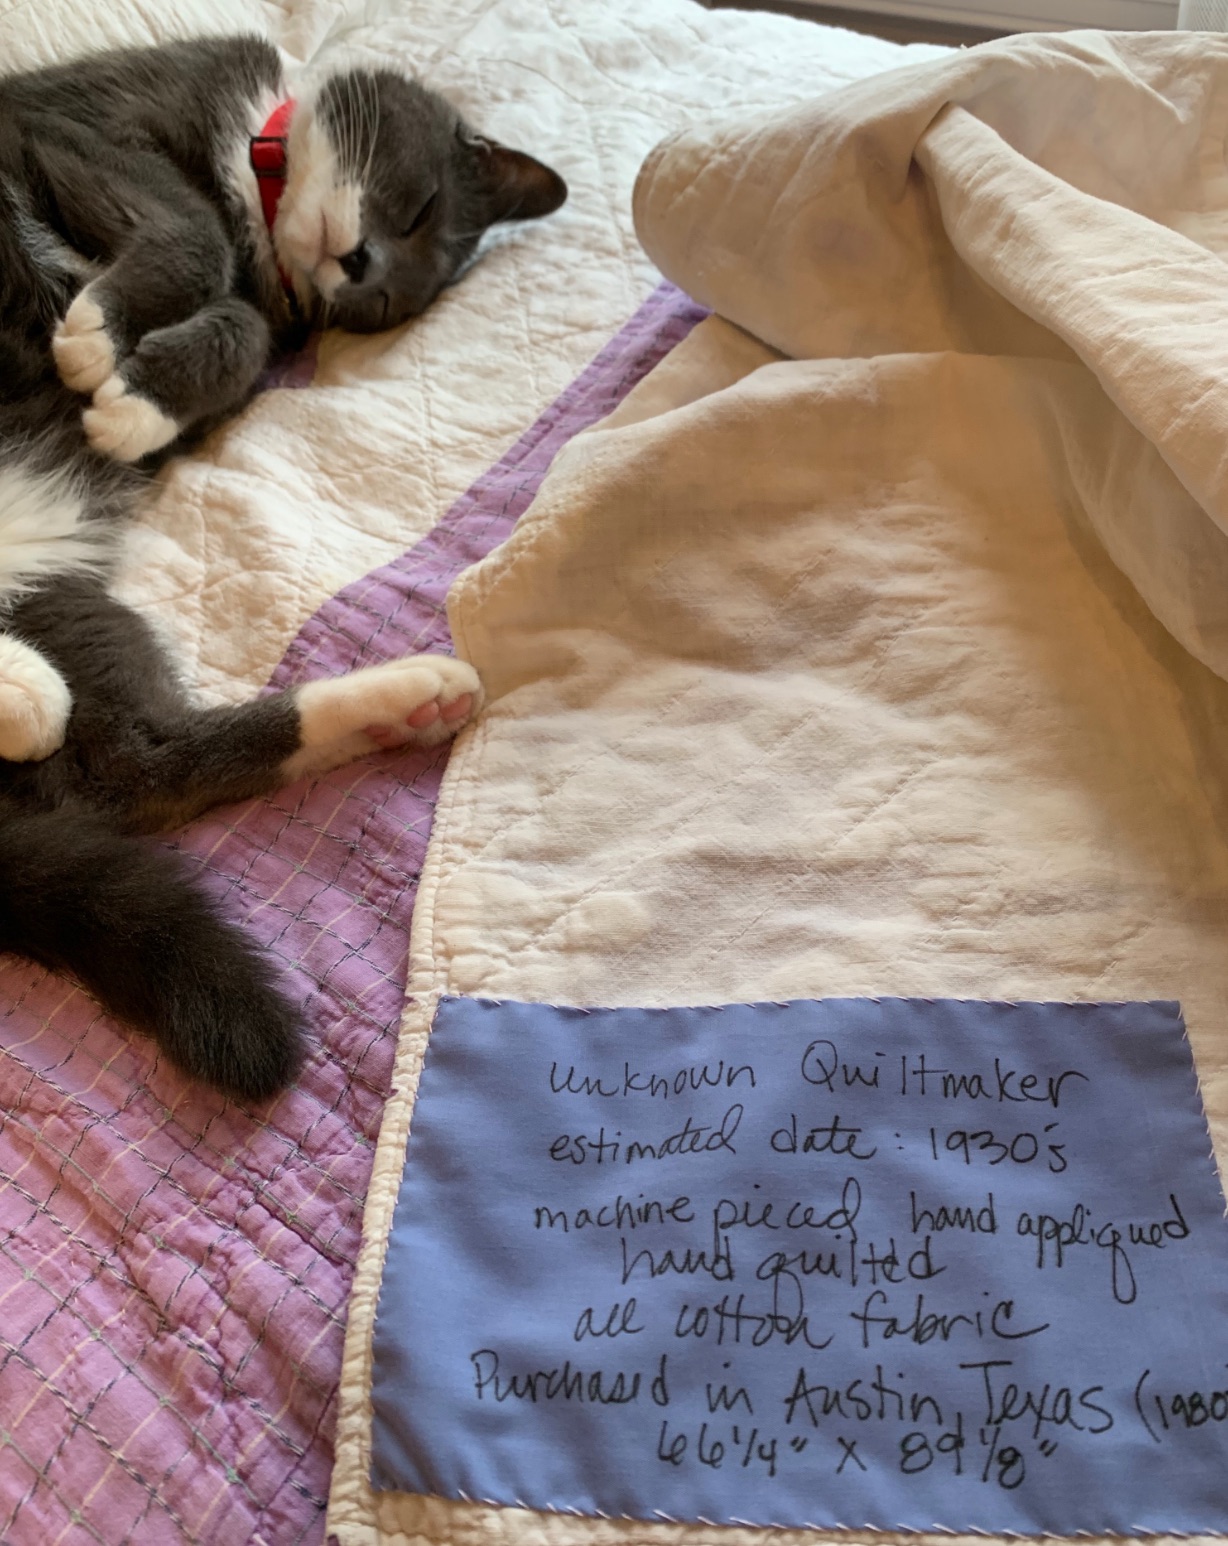 unknown Quiltmaker
estimated date: 1930's
machine pieced hand appliqued
hand quilted
all cotton fabric
Purchased in Austin, Texas (1980
66 1/4" x 89 1/8"